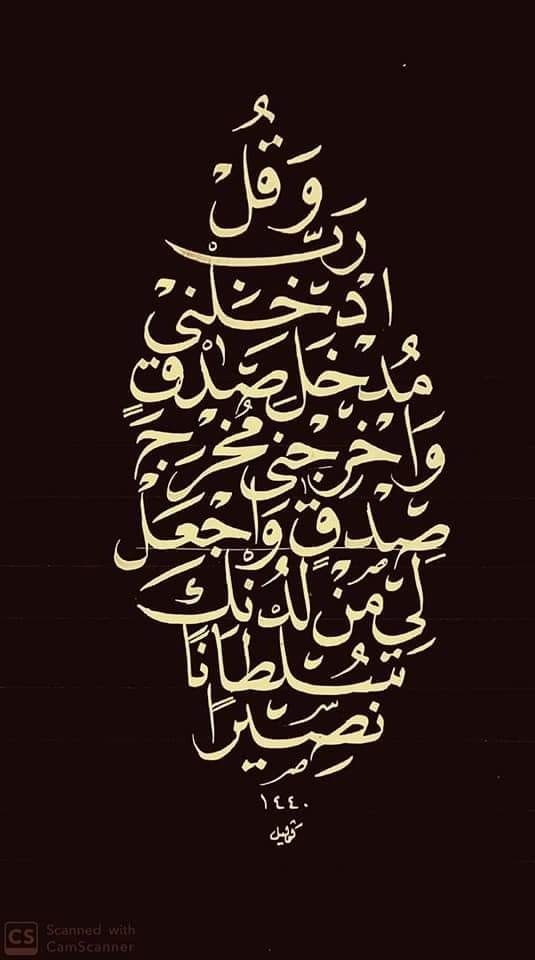 وَقُلْ
رَبِّ
ادْخَلني
مُدْخَلَ صِدْقٍ
وَاَخْرِجْنى مُخْرَجَ
صِدْقٍ وَاجْعَلْ
لِّي مِنْ لَدُنْكَ
سُلْطَانًا
نَصِيْرًا
١٤٤٠
Scanned with
CamScanner